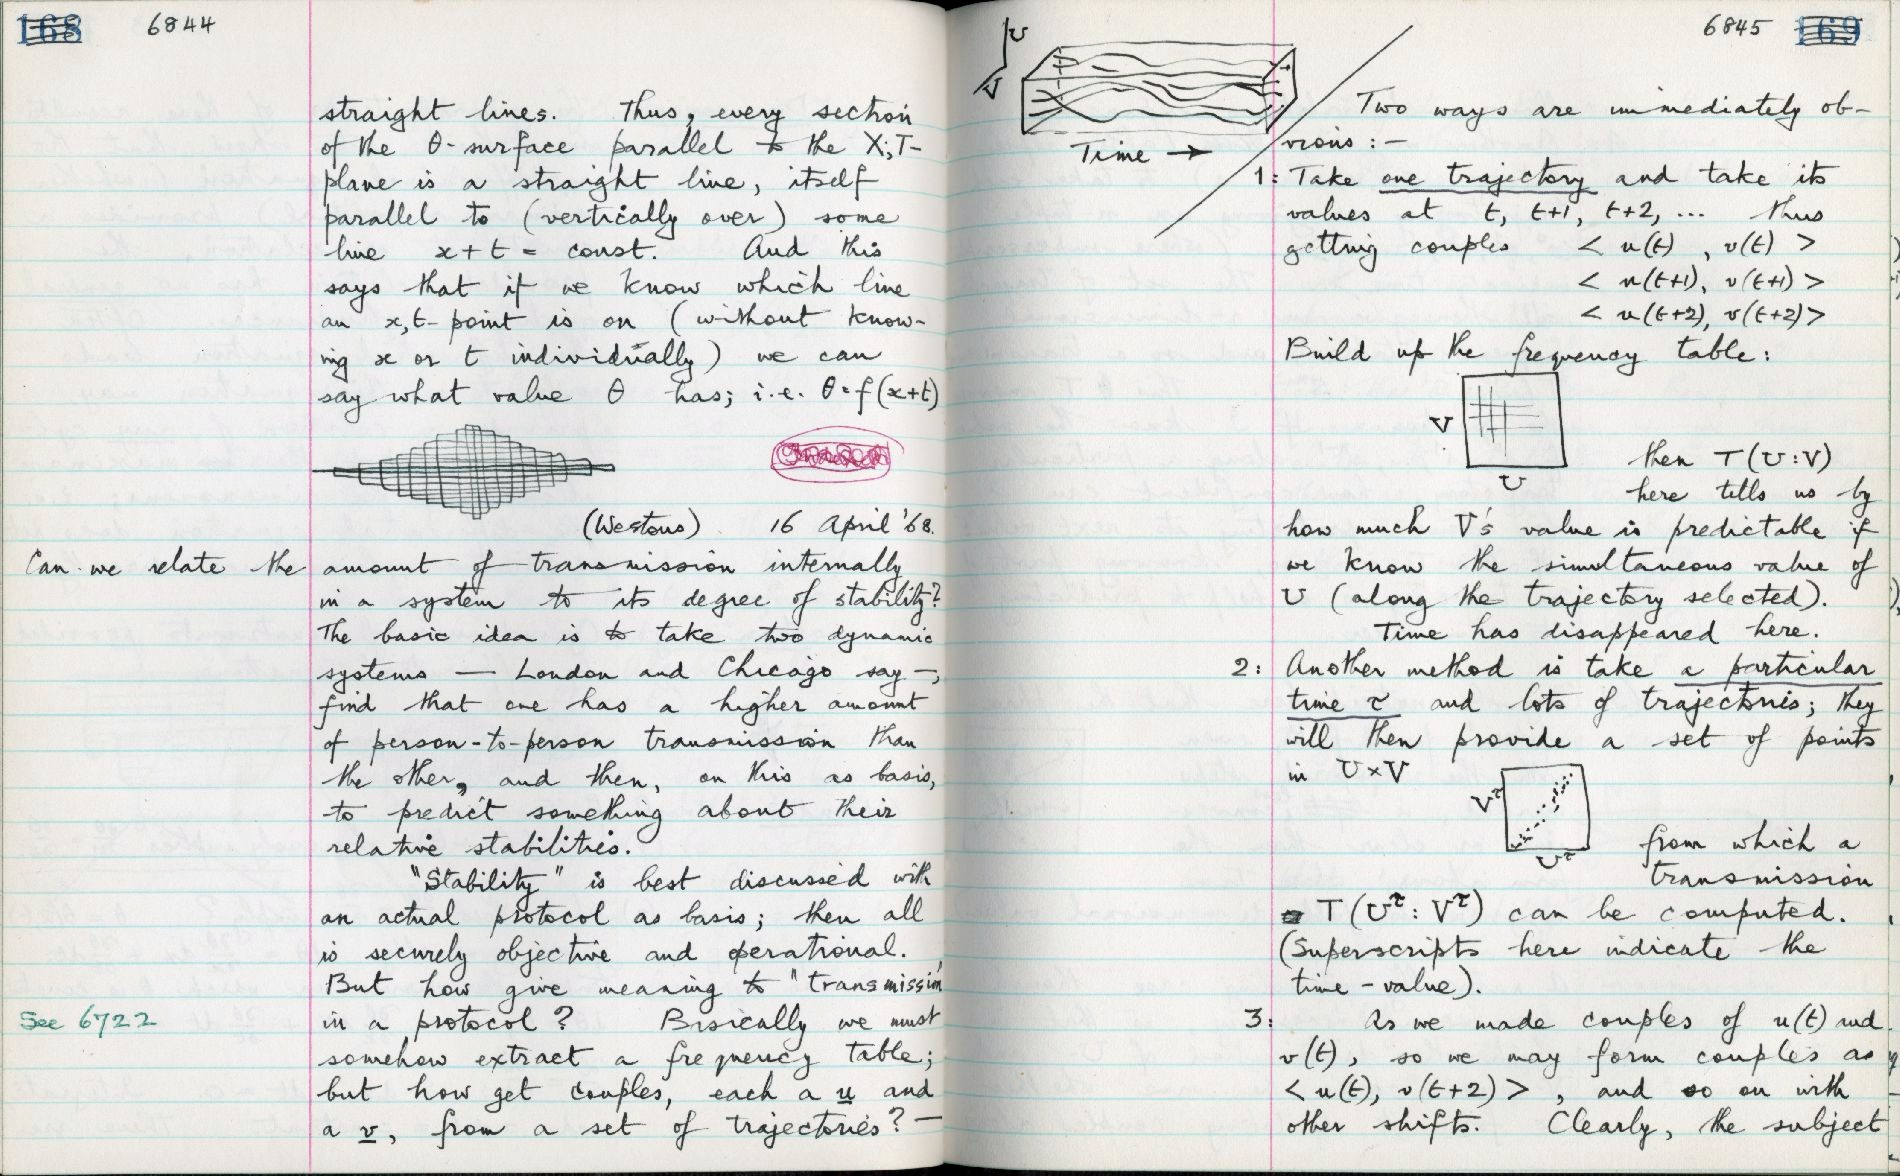 168 6844
straight lines. Thus, every section
of the θ-surface parallel to the X,T-
plane is a straight line, itself
parallel to (vertically over) some
line x+t = const. And this
says that if we know which line
an x,t-point is on (without know-
ing x or t individually) we can
say what value θ has; i.e. θ=f(x+t)
(Westons) 16 April '68.
Can we relate the amount of transmission internally
in a system to its degree of stability?
The basic idea is to take two dynamic
systems — London and Chicago say —,
find that one has a higher amount
of person-to-person transmission than
the other, and then, on this as basis,
to predict something about their
relative stabilities.
"Stability" is best discussed with
an actual protocol as basis; then all
is securely objective and operational.
But how give meaning to "transmission"
See 6722
in a protocol? Basically we must
somehow extract a frequency table;
but how get couples, each a u and
a v, from a set of trajectories? —
6845 169
U
V
Time →
Two ways are immediately ob-
vious :—
1: Take one trajectory and take its
values at t, t+1, t+2, ... thus
getting couples < u(t) , v(t) >
< u(t+1), v(t+1) >
< u(t+2), v(t+2) >
Build up the frequency table:
V
U
then T(U:V)
here tells us by
how much V's value is predictable if
we know the simultaneous value of
U (along the trajectory selected).
Time has disappeared here.
2: Another method is take a particular
time τ and lots of trajectories; they
will then provide a set of points
in U×V
V^τ
U^τ
from which a
transmission
T(U^τ : V^τ) can be computed.
(Superscripts here indicate the
time-value).
3: As we made couples of u(t) and
v(t), so we may form couples as
< u(t), v(t+2) > , and so on with
other shifts. Clearly, the subject